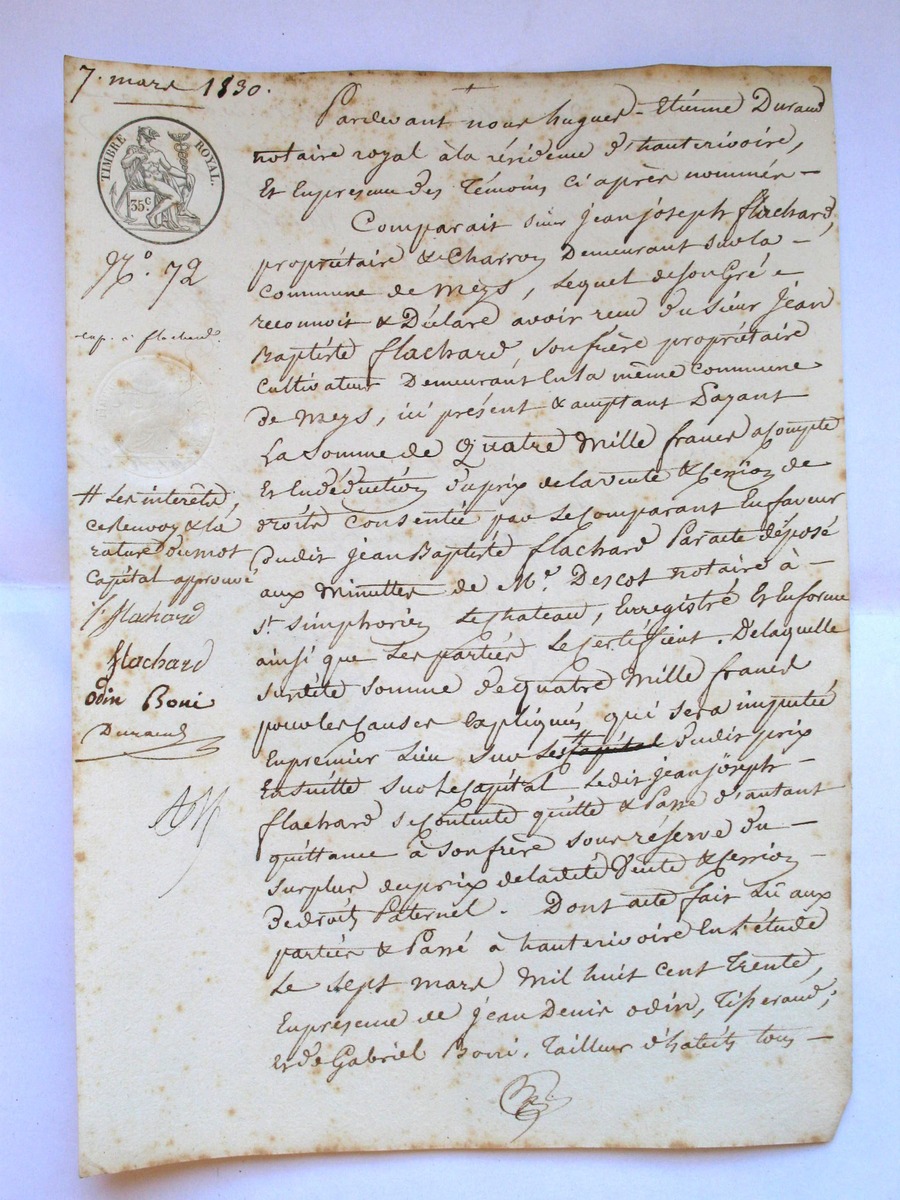 7. mars 1830.
TIMBRE ROYAL.
35c
N°. 72
exp. à flachard.
Pardevant nous hugues-Etienne Durand
notaire royal à la résidence d'hauterivoire,
Et En présence des Témoins ci après nommés -
Comparait sieur jean joseph flachard,
propriétaire & Charron Demeurant sur la -
commune de Meys, Lequel de son Gré
reconnoit & Déclare avoir recu du sieur jean
Baptiste flachard, son frère propriétaire
cultivateur Demeurant En la même commune
de Meys, ici présent & acceptant Payant
La somme de Quatre Mille francs acompte
Et En déduction du prix de la vente & Cession de
droits Consentie par Le Comparant En faveur
dudit jean Baptiste flachard Par acte déposé
aux Minuttes de Me. Descot notaire à -
st. simphorien Le chateau, Enregistré Et En forme
ainsi que Les parties Le Certifient. De laquelle
susdite somme de quatre Mille francs
pour les Causes Expliquées qui sera imputée
En premier Lieu sur Les # capital dudit prix
En suitte sur Le Capital Ledit jean joseph -
flachard se Contente quitte & Passe d'autant
quittance à son frère sous réserve du -
surplus du prix de ladite Vente & Cession -
De droits Paternel. Dont acte fait Lû aux
parties & Passé à hauterivoire En L'étude
Le sept mars Mil huit cent Trente,
En présence de jean Denis odin, Tisserand,
Et de Gabriel Boni, Tailleur d'habits tous -
# Les intérêts
ce Renvoy & La
rature du mot
capital approuvé
flachard
flachard
odin Boni
Durand